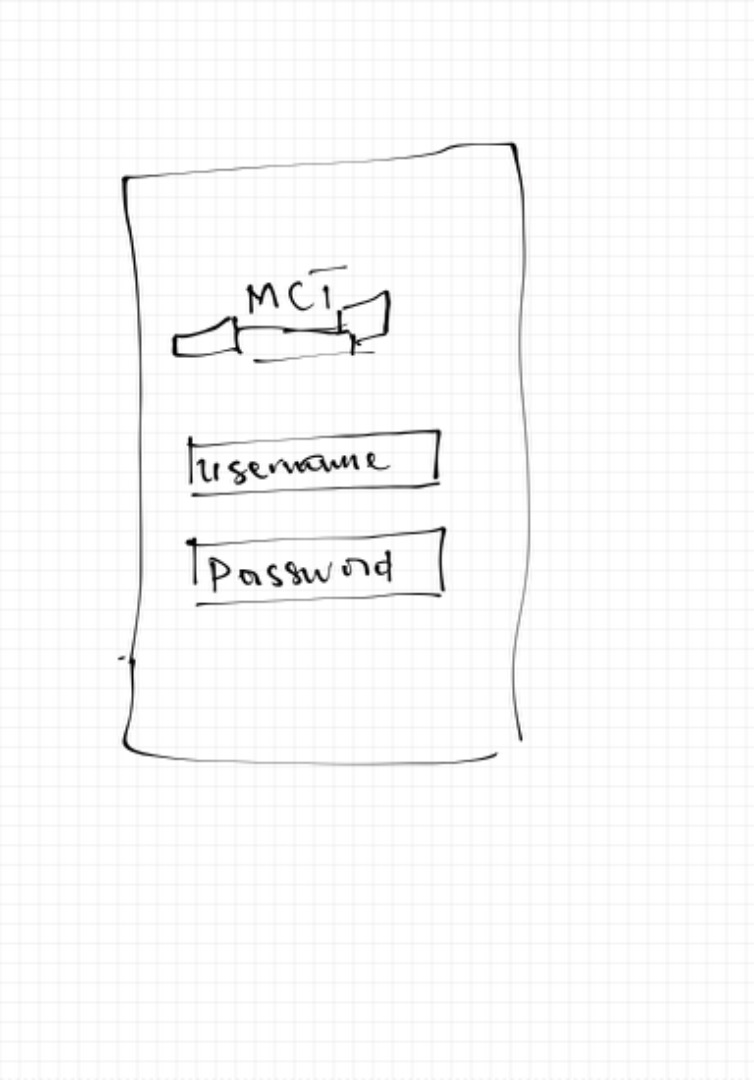 MCT
username
Password